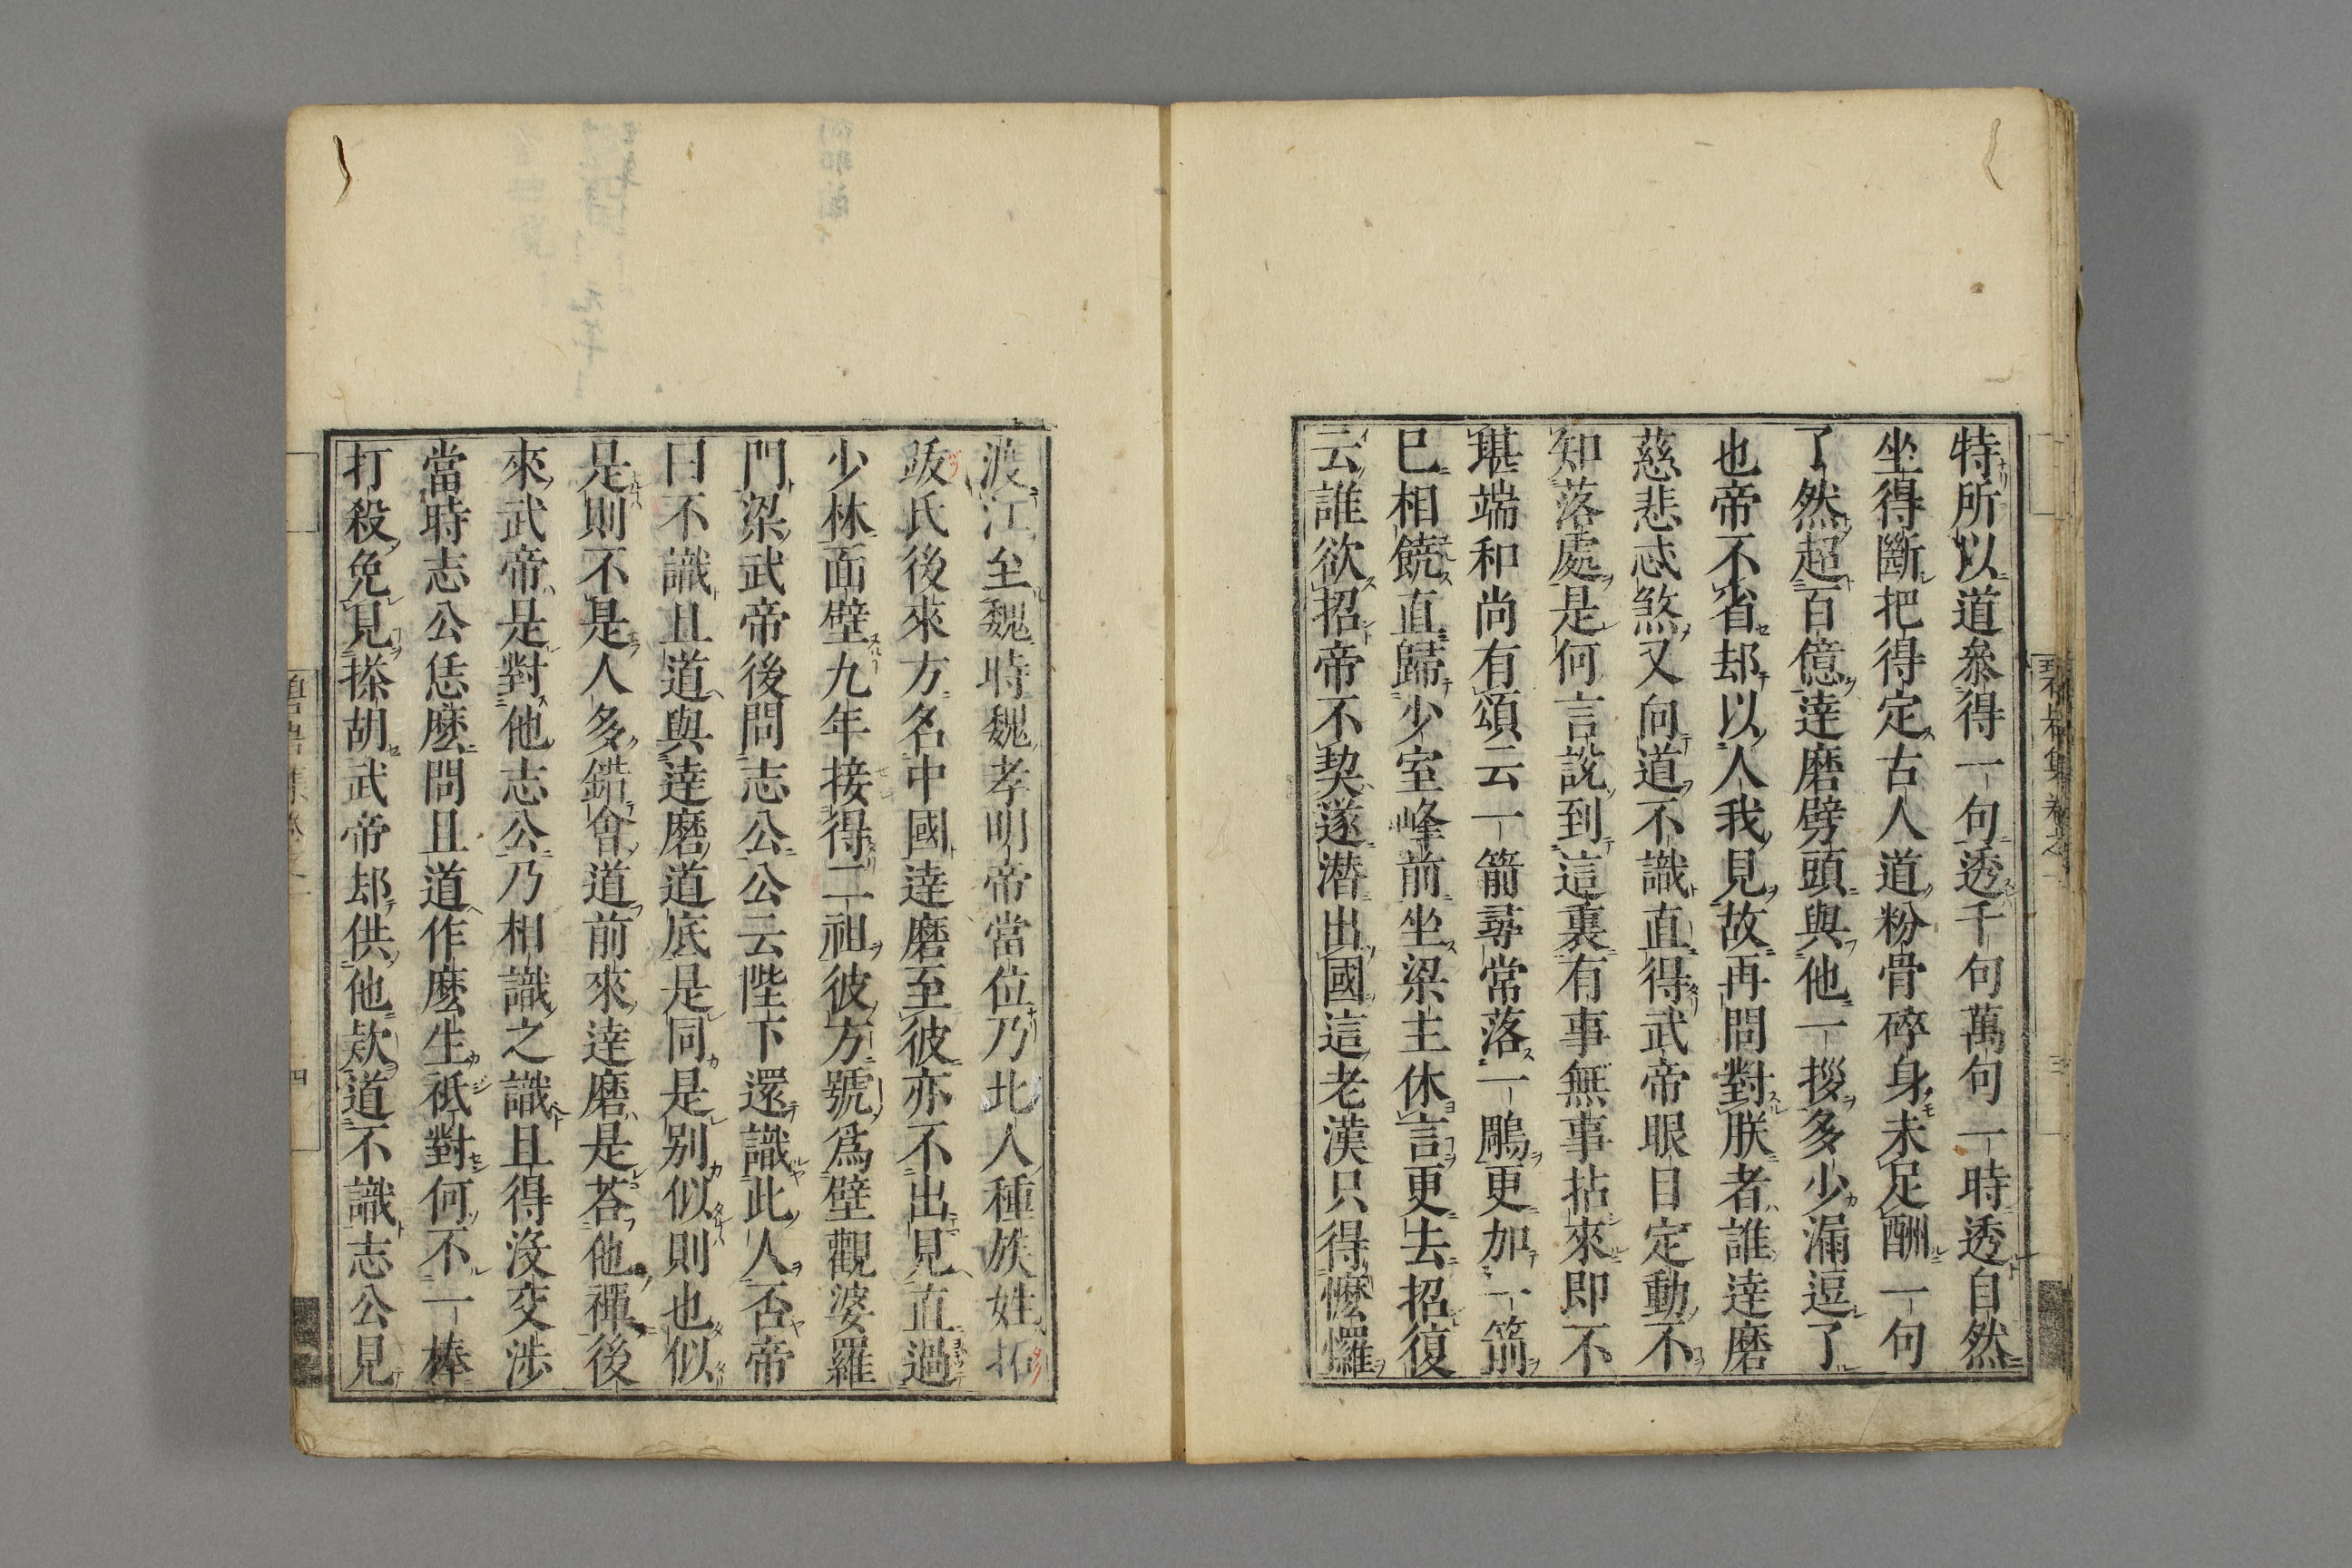 特所以道叅得一句透千句萬句一時透自然
坐得斷把得定古人道粉骨碎身未足酬一句
了然超百億達磨劈頭與他一拶多少漏逗了
也帝不省却以人我見故再問對朕者誰達磨
慈悲忒煞又向道不識直得武帝眼目定動不
知落處是何言說到這裏有事無事拈來即不
堪端和尚有頌云一箭尋常落一鵰更加一箭
已相饒直歸少室峰前坐梁主休言更去招復
云誰欲招帝不契遂潛出國這老漢只得懡㦬
渡江至魏時魏孝明帝當位乃北人種族姓拓
跋氏後來方名中國達磨至彼亦不出見直過
少林面壁九年接得二祖彼方號爲壁觀婆羅
門梁武帝後問志公公云陛下還識此人否帝
曰不識且道與達磨道底是同是別似則也似
是則不是人多錯會道前來達磨是荅他禪後
來武帝是對他志公乃相識之識且得沒交涉
當時志公恁麼問且道作麼生祗對何不一棒
打殺免見搽胡武帝却供他欵道不識志公見
碧岩集 卷之一
三
四